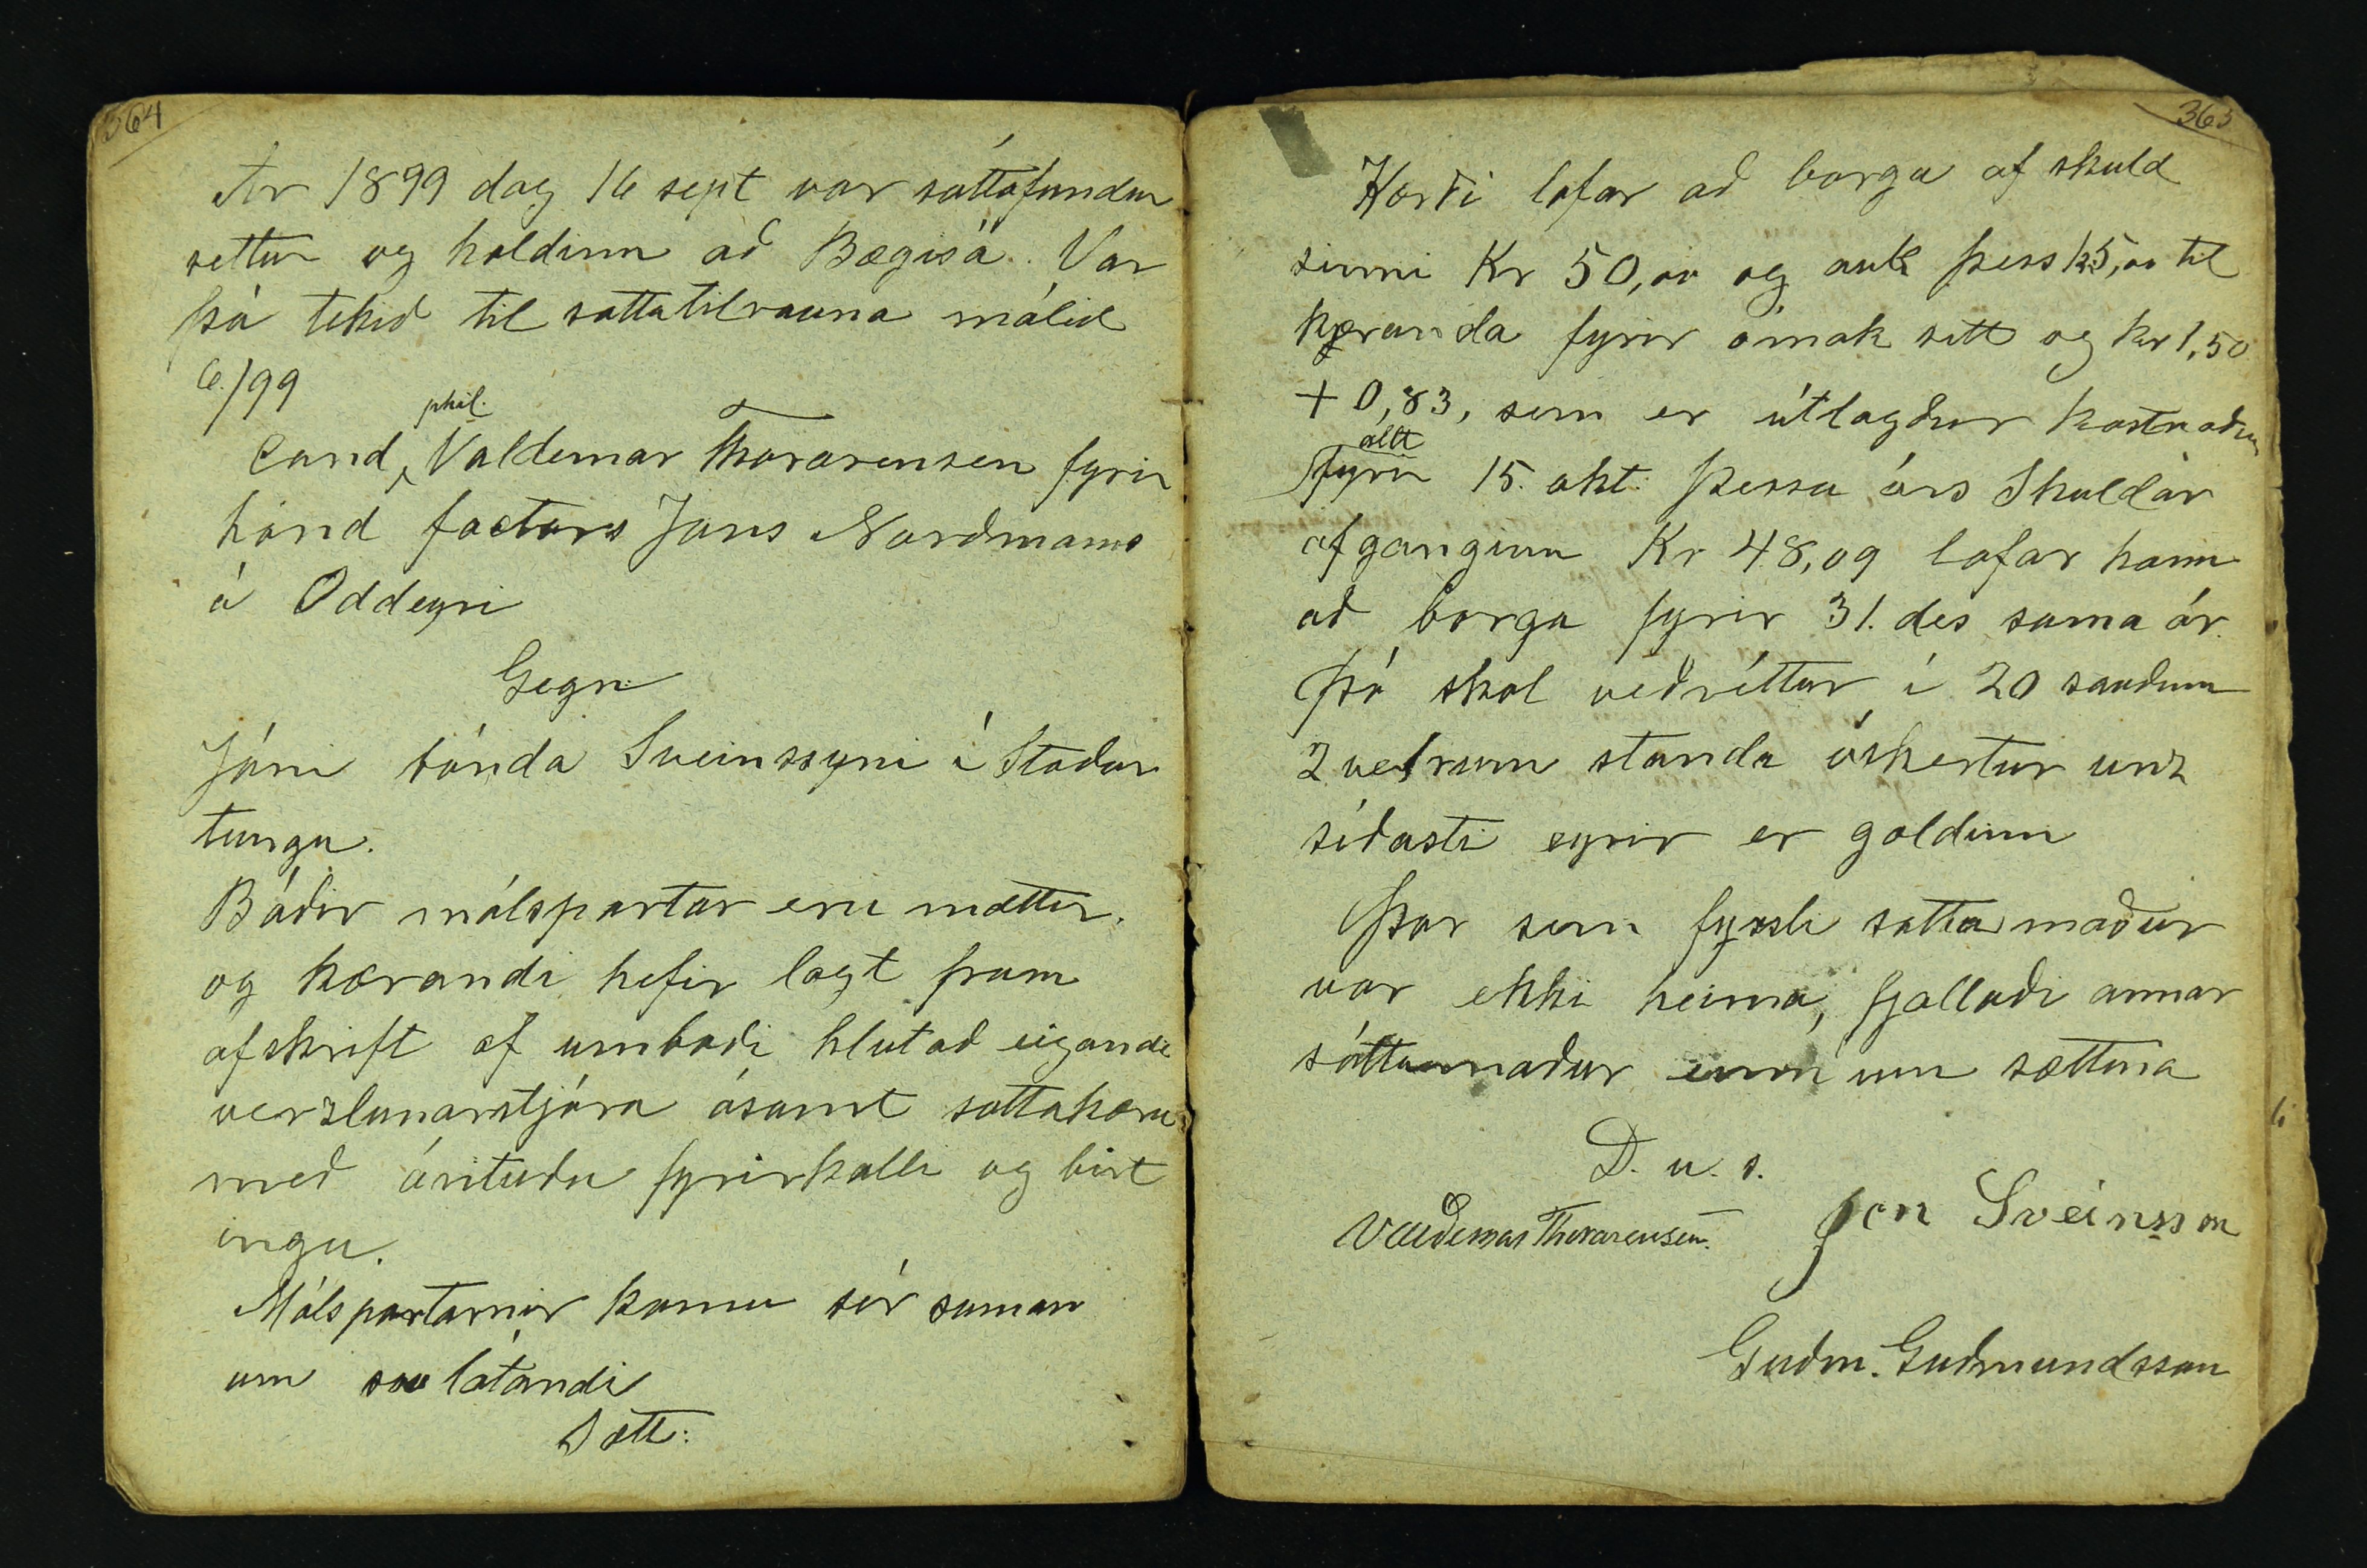 364
Ár 1899 dag 16 sept var sáttafundur
settur og haldinn að Bægisá. Var
þá tekið til sáttatilrauna málið
6./99
phil.
Cand, Valdemar Thorarensen fyrir
hönd factors Jóns Norðmanns
á Oddeyri
Gegn
Jóni bónda Sveinssyni í Staðar
tungu.
Báðir málspartar eru mættir.
og kærandi hefir lagt fram
afskrift af umboði hlutað eigandi
verzlunarstjóra ásamt sáttakæru
með árituðu fyrirkalli og birt
ingu.
Málspartarnir komu sér saman
um svo látandi
Sætt:
365
Kærði lofar að borga af skuld
sinni Kr 50,00 og auk þess kr 5,00 til
kæranda fyrir ómak sitt og kr 1,50
+ 0,83, sem er útlagður kostnaður
allt
fyrir 15. okt. þessa árs Skuldar
afganginn Kr 48,09 lofar hann
að borga fyrir 31. des sama ár.
Þó skal veðréttur í 20 sauðum
2 vetrum standa óskertur unz
síðasti eyrir er goldinn
Þar sem fyrsti sáttamaður
var ekki heima, fjallaði annar
sáttamaður einn um sættina
D. u. s.
Valdemar Thorarensen. Jón Sveinsson
Guðm. Guðmundsson